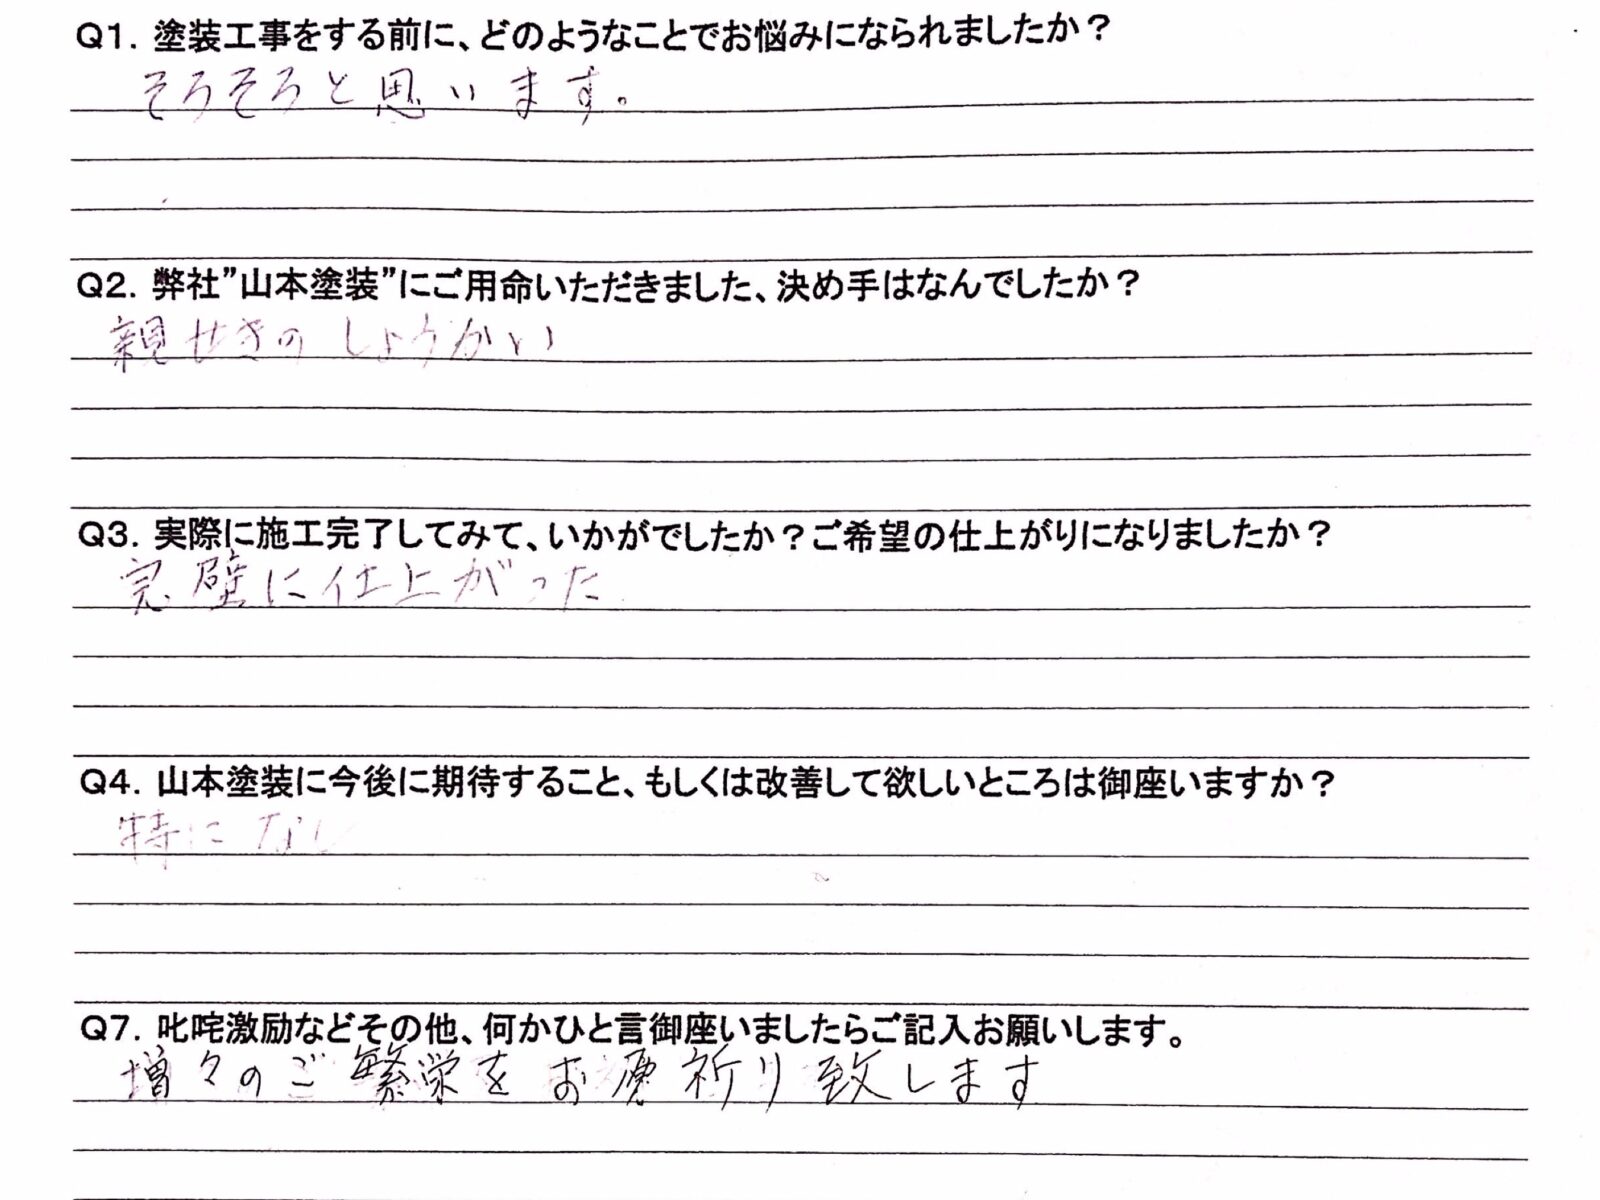 Q1. 塗装工事をする前に、どのようなことでお悩みになられましたか？
そろそろと思います。
Q2. 弊社”山本塗装”にご用命いただきました、決め手はなんでしたか？
親せきのしょうかい
Q3. 実際に施工完了してみて、いかがでしたか？ご希望の仕上がりになりましたか？
完璧に仕上がった
Q4. 山本塗装に今後に期待すること、もしくは改善して欲しいところは御座いますか？
特になし
Q7. 叱咤激励などその他、何かひと言御座いましたらご記入お願いします。
増々のご繁栄をお祈り致します